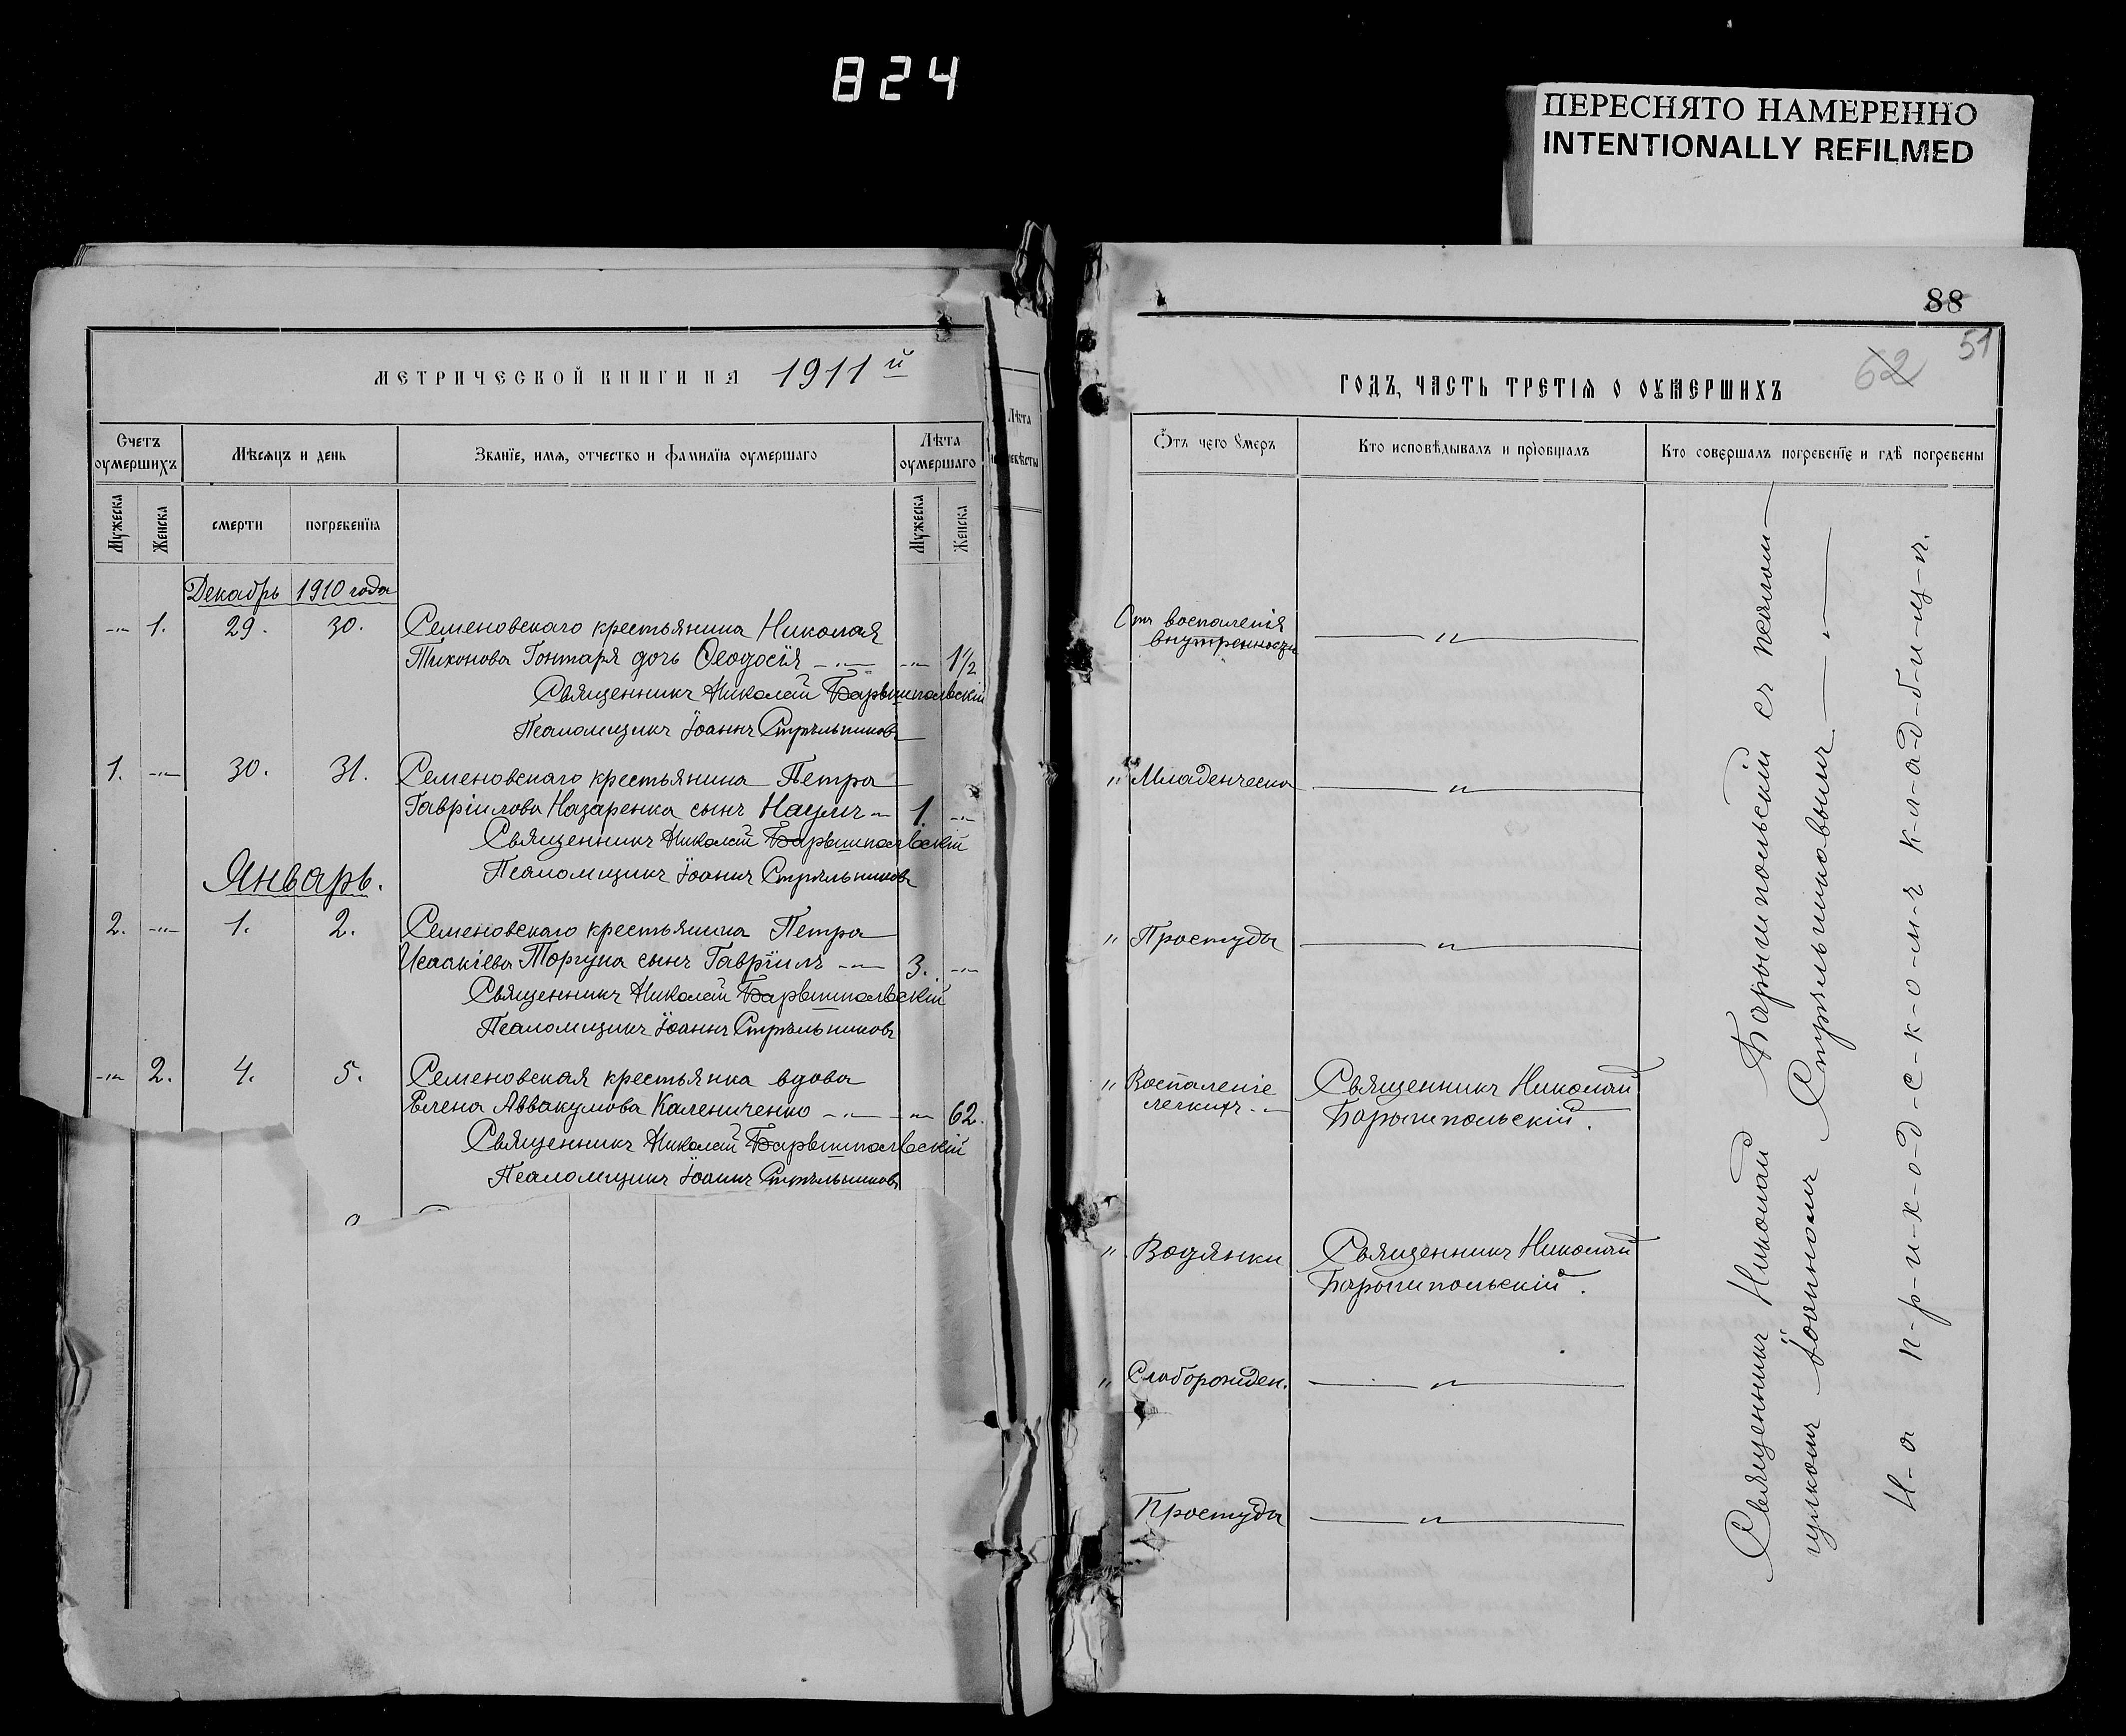 824
ПЕРЕСНЯТО НАМЕРЕННО
INTENTIONALLY REFILMED
МЕТРИЧЕСКОЙ КНИГИ НА 1911й
Счетъ оумершихъ
Мѣсяцъ и день
Званїе, имѧ, отчество и фамилїа оумершаго
Лѣта оумершаго
Мужеска
Женска
смерти
погребенїѧ
Мужеска
Женска
Декабрь 1910 года
-"- 1. 29. 30. Семеновскаго крестьянина Николая
Тихонова Гонтаря дочь Ѳеодосія -"- -"- 1½
Священникъ Николай Барышпольскій
Псаломщикъ Іоаннъ Стрѣльниковъ
1. -"- 30. 31. Семеновскаго крестьянина Петра
Гавріилова Назаренка сынъ Наумъ -"- 1. -"-
Священникъ Николай Барышпольскій
Псаломщикъ Іоаннъ Стрѣльниковъ
Январь.
2. -"- 1. 2. Семеновскаго крестьянина Петра
Исаакіева Торгуна сынъ Гавріилъ -"- 3. -"-
Священникъ Николай Барышпольскій
Псаломщикъ Іоаннъ Стрѣльниковъ
-"- 2. 4. 5. Семеновская крестьянка вдова
Елена Аввакумова Калениченко -"- -"- 62.
Священникъ Николай Барышпольскій
Псаломщикъ Іоаннъ Стрѣльниковъ
Лѣта
88
51
62
ГОДЪ, ЧАСТЬ ТРЕТІѦ О ОУМЕРШИХЪ
Ѿтъ чего умеръ
Кто исповѣдывалъ и прїобщалъ
Кто совершалъ погребенїе и гдѣ погребены
Отъ воспаленія
внутренности
"
" Младенческа
"
" Простуды
"
" Воспаленіе
легкихъ -"-
Священникъ Николай
Барышпольскій.
" Водянки
Священникъ Николай
Барышпольскій.
" Слаборожден.
"
Простуды
"
Священникъ Николай Барышпольскій съ псалом-
щикомъ Іоанномъ Стрѣльниковымъ
Н-а п-р-и-х-о-д-с-к-о-м-ъ к-л-а-д-б-и-щ-ѣ.